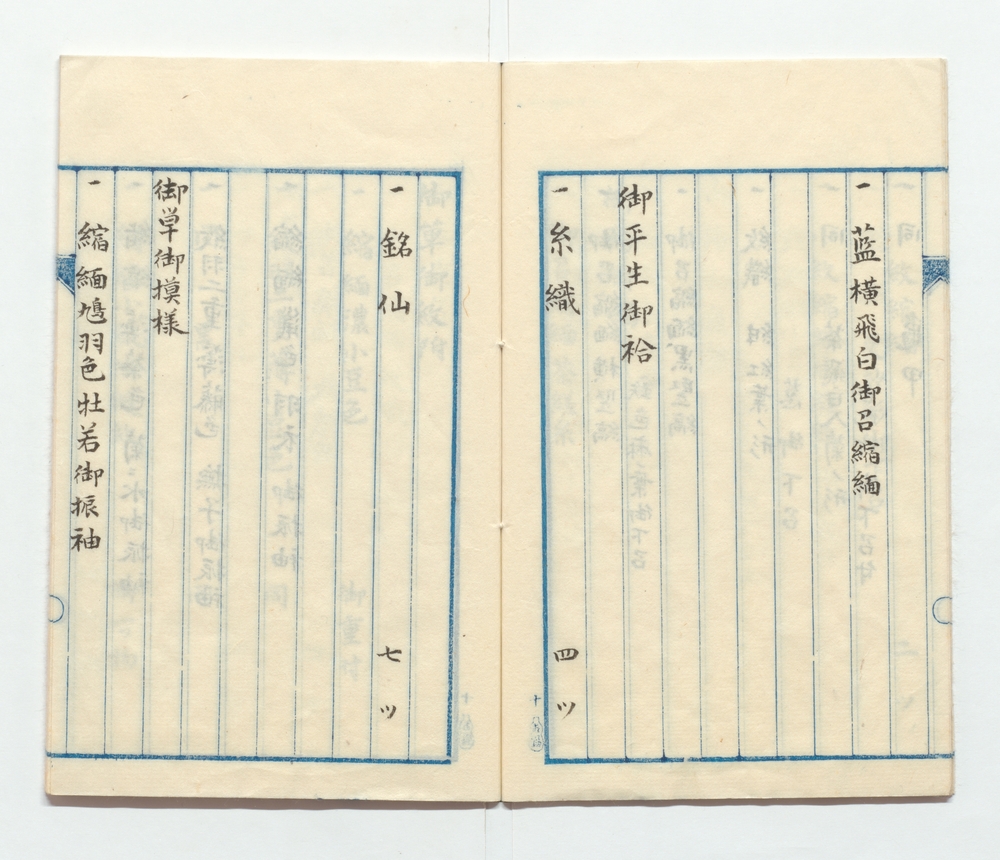 一 藍横飛白御召縮緬
御平生御袷
一 糸織 四ツ
一 銘仙 七ツ
御単御摸様
一 縮緬鳩羽色牡若御振袖